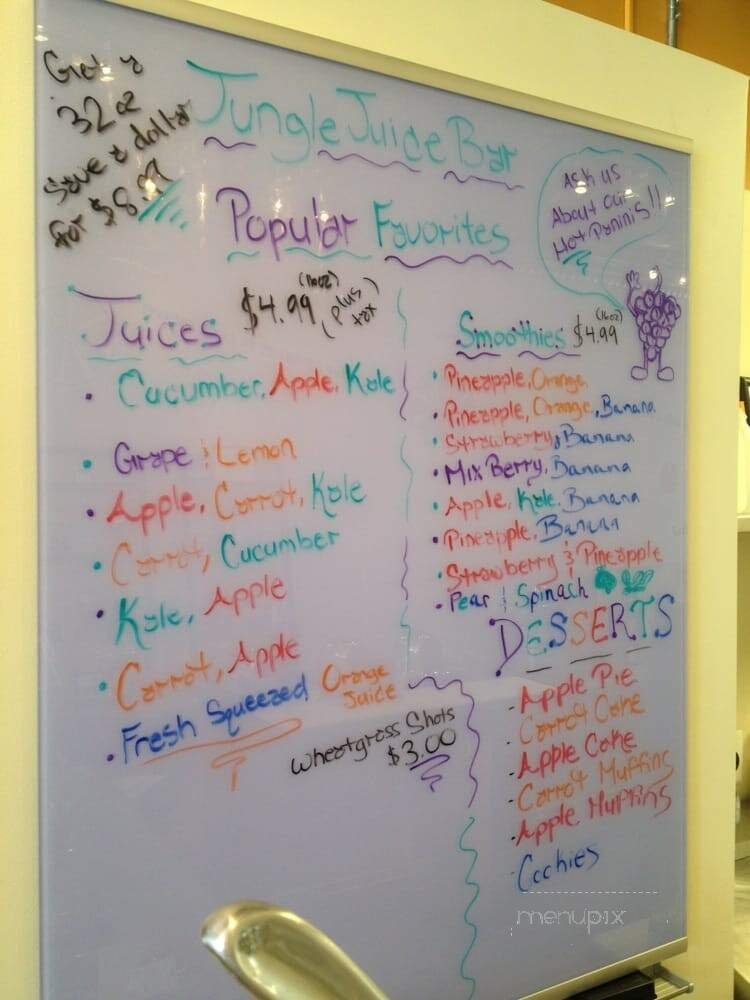 Get a
32 oz
Save a dollar
for $8.97
Jungle Juice Bar
Popular Favorites
Ask us
About our
Hot Paninis!!
Juices $4.99 (16oz) (plus tax)
• Cucumber, Apple, Kale
• Grape & Lemon
• Apple, Carrot, Kale
• Carrot, Cucumber
• Kale, Apple
• Carrot, Apple
• Fresh Squeezed Orange
Juice
Wheatgrass Shots
$3.00
Smoothies $4.99 (16oz)
• Pineapple, Orange
• Pineapple, Orange, Banana
• Strawberry, Banana
• Mix Berry, Banana
• Apple, Kale, Banana
• Pineapple, Banana
• Strawberry & Pineapple
• Pear & Spinach
DESSERTS
- Apple Pie
- Carrot Cake
- Apple Cake
- Carrot Muffins
- Apple Muffins
- Cookies
menupix